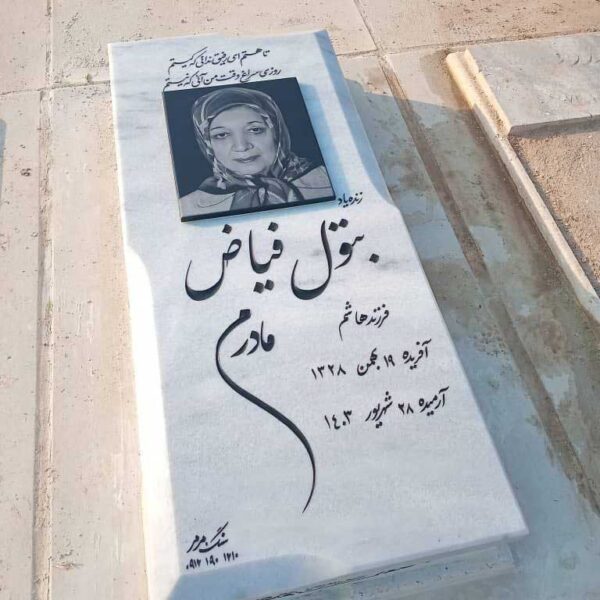 تا هستم ای رفیق ندانی که کیستم
روزی سراغ وقت من آئی که نیستم
زنده یاد
بتول فیاض
مادرم
فرزند هاشم
آفریده ۱۹ بهمن ۱۳۲۸
آرمیده ۲۸ شهریور ۱۴۰۳
سنگ مرمر
۰۹۱۲ ۱۹۰ ۱۲۱۰